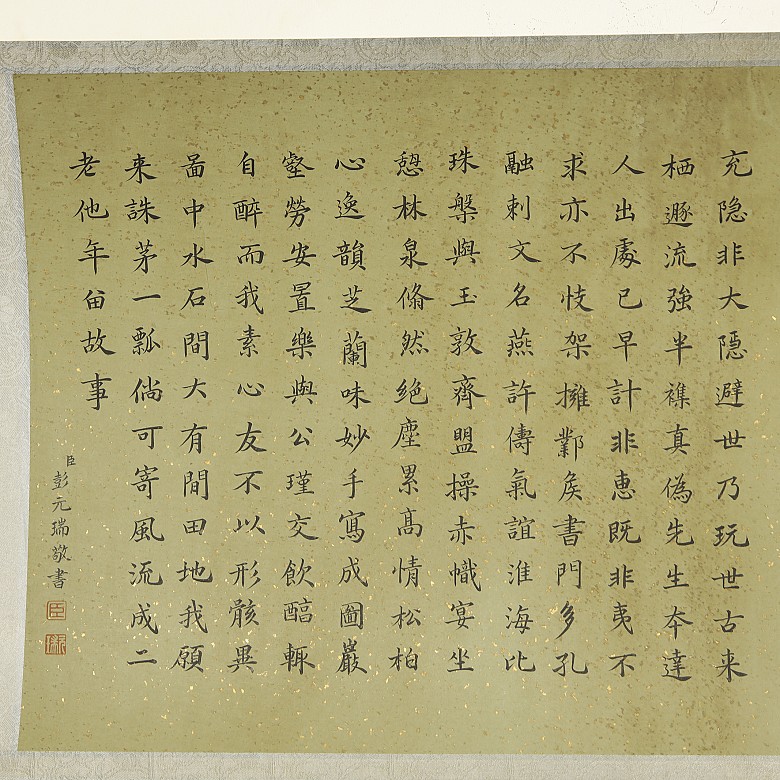 充隐非大隠避世乃玩世古来
栖遯流強半襍真偽先生夲達
人出處已早計非惠既非夷不
求亦不忮架擁鄴矦書門多孔
融刺文名燕許儔氣誼淮海比
珠槃與玉敦齊盟操赤幟宴坐
憩林泉翛然绝塵累髙情松柏
心逸韻芝蘭味妙手寫成圖巖
壑勞安置樂與公瑾交飲醕輒
自醉而我素心友不以形骸異
啚中水石間大有閒田地我願
来誅茅一瓢倘可寄風流成二
老他年畄故事
臣彭元瑞敬書
臣